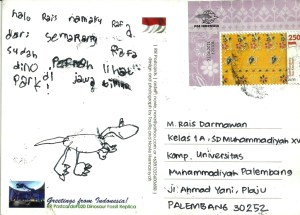 halo Rais namaku Rafa
dari semarang
Rafa
sudah Pernah lihat
dino di jawa timur
Park!
Greetings from Indonesia!
Dinosaur Fossil Replica
250
M. Rais Darmawan
Kelas 1A. SD Muhammadiyah XV
Komp. Universitas
Muhammadiyah Palembang
Jl: Ahmad Yani, Plaju
PALEMBANG 30252